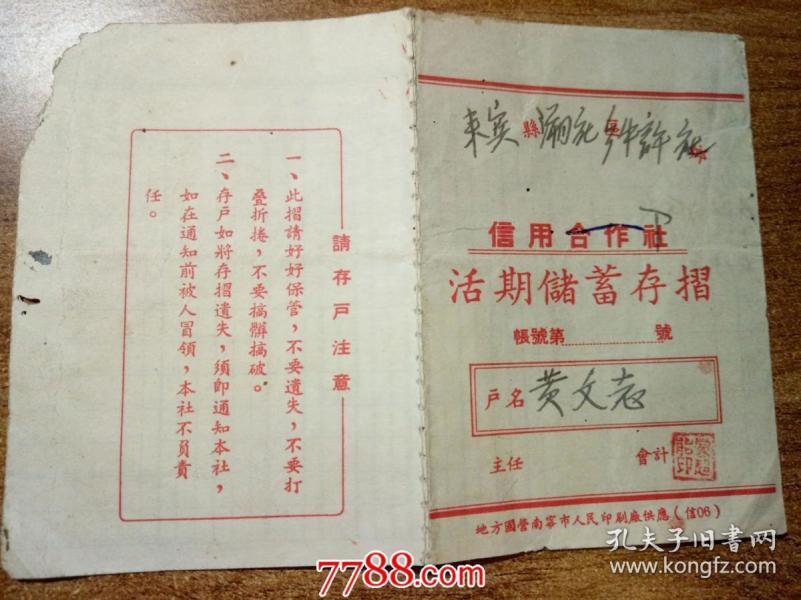 來賓縣
信用合作社
活期儲蓄存摺
帳號第 號
戶名 黄文志
主任 會計
地方國營南寧市人民印刷廠供應(信06)
請存戶注意
一、此摺請好好保管，不要遺失，不要打
叠折捲，不要搞髒搞破。
二、存戶如將存摺遺失，須即通知本社，
如在通知前被人冒領，本社不負責
任。
7788.com
孔夫子旧書网
www.kongfz.com